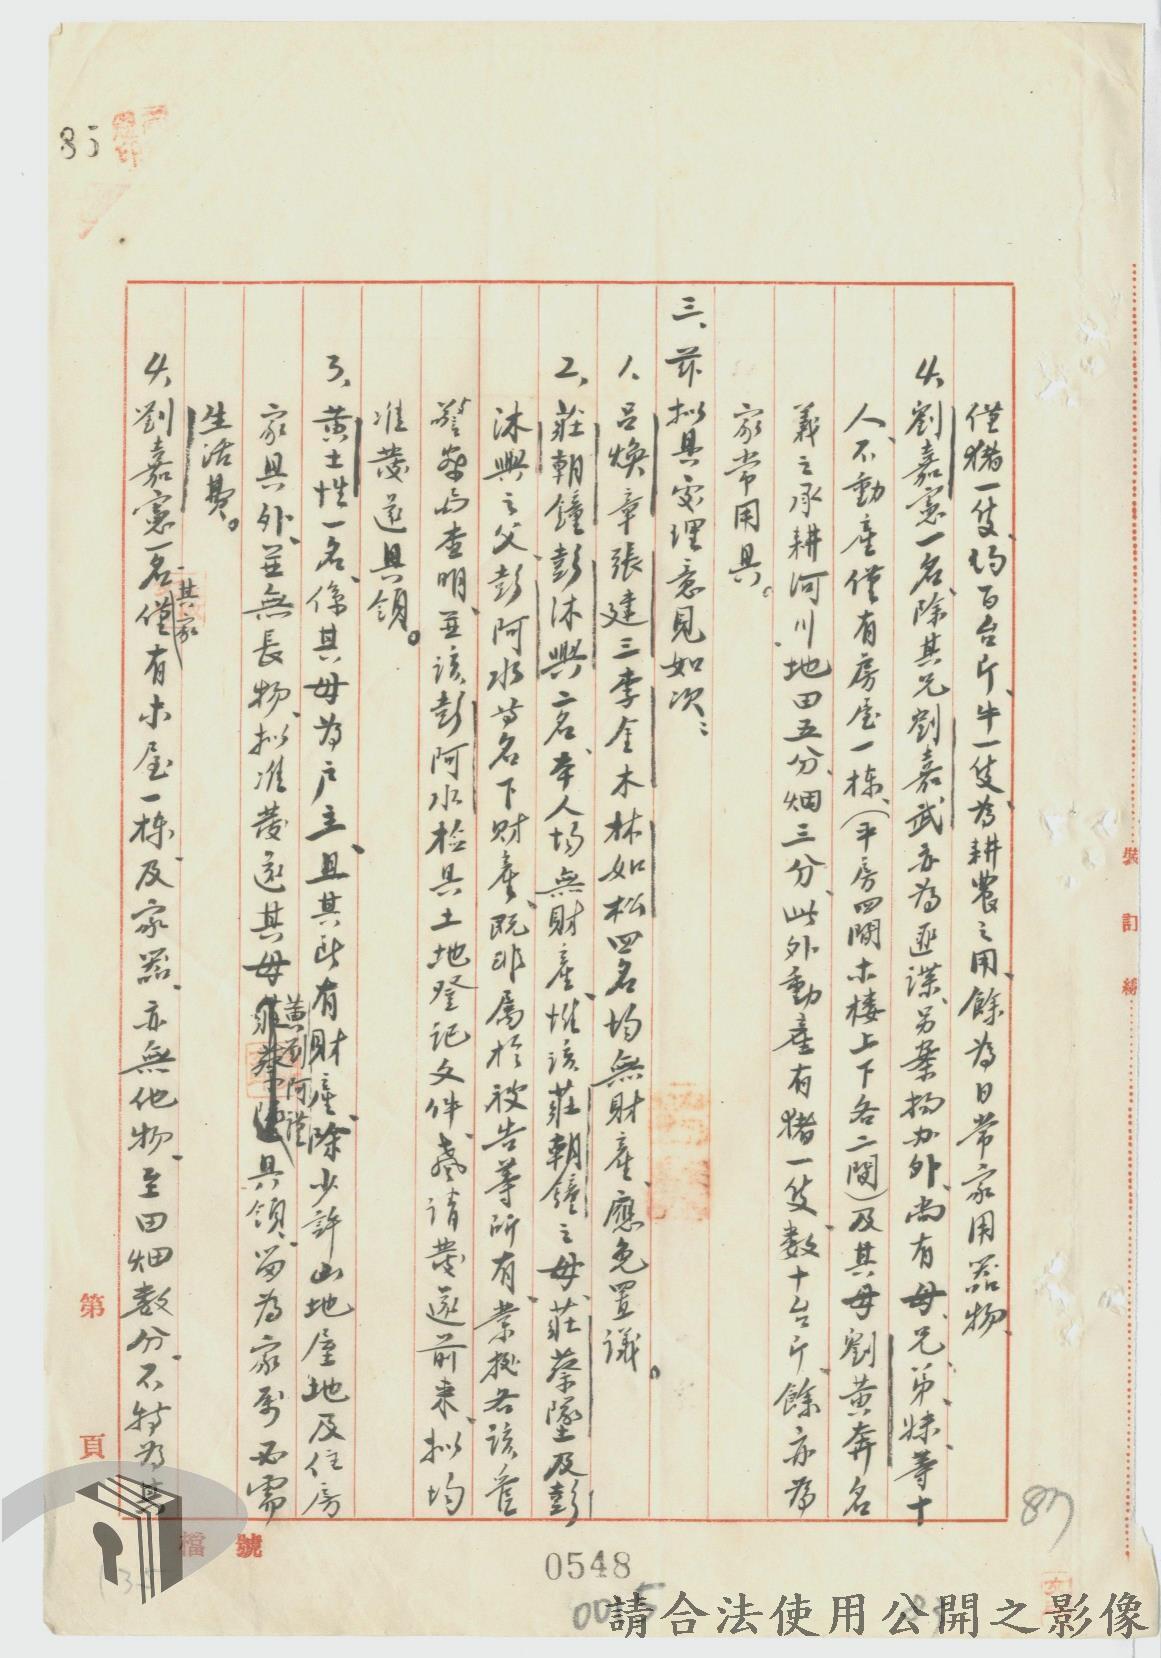 85
僅猪一隻、約百台斤、牛一隻、為耕農之用、餘為日常家用器物、
4、劉嘉憲一名、除其兄劉嘉武亦為匪諜、另案擬办外、尚有母、兄、弟、妹、等十
人、不動產僅有房屋一棟、(平房四間木楼上下各二間)及其母劉黃奔名
義之承耕河川地田五分、畑三分、此外動產有猪一隻、数十台斤、餘亦為
家常用具。
三、茲擬具處理意見如次:
1、呂煥章張建三李金木林如松四名均無財產、應免置議。
2、莊朝鐘彭沐興二名、本人均無財產、惟該莊朝鐘之母、莊蔡墜及彭
沐興之父、彭阿水等名下財產、既非屬於被告等所有、業據各該管
警察局查明、並該彭阿水檢具土地登記文件、懇請發還前来、拟均
准發還具領。
3、黃土性一名、係其母為户主、且其所有財產、除少許山地屋地及住房
家具外、並無長物、拟准發還其母黃劉阿謹具領、留為家屬必需
生活費。
4、劉嘉憲一名、其家僅有木屋一棟、及家器、亦無他物、至田畑数分、不特為其
裝
訂
線
第
頁
檔
號
0548
87
請合法使用公開之影像